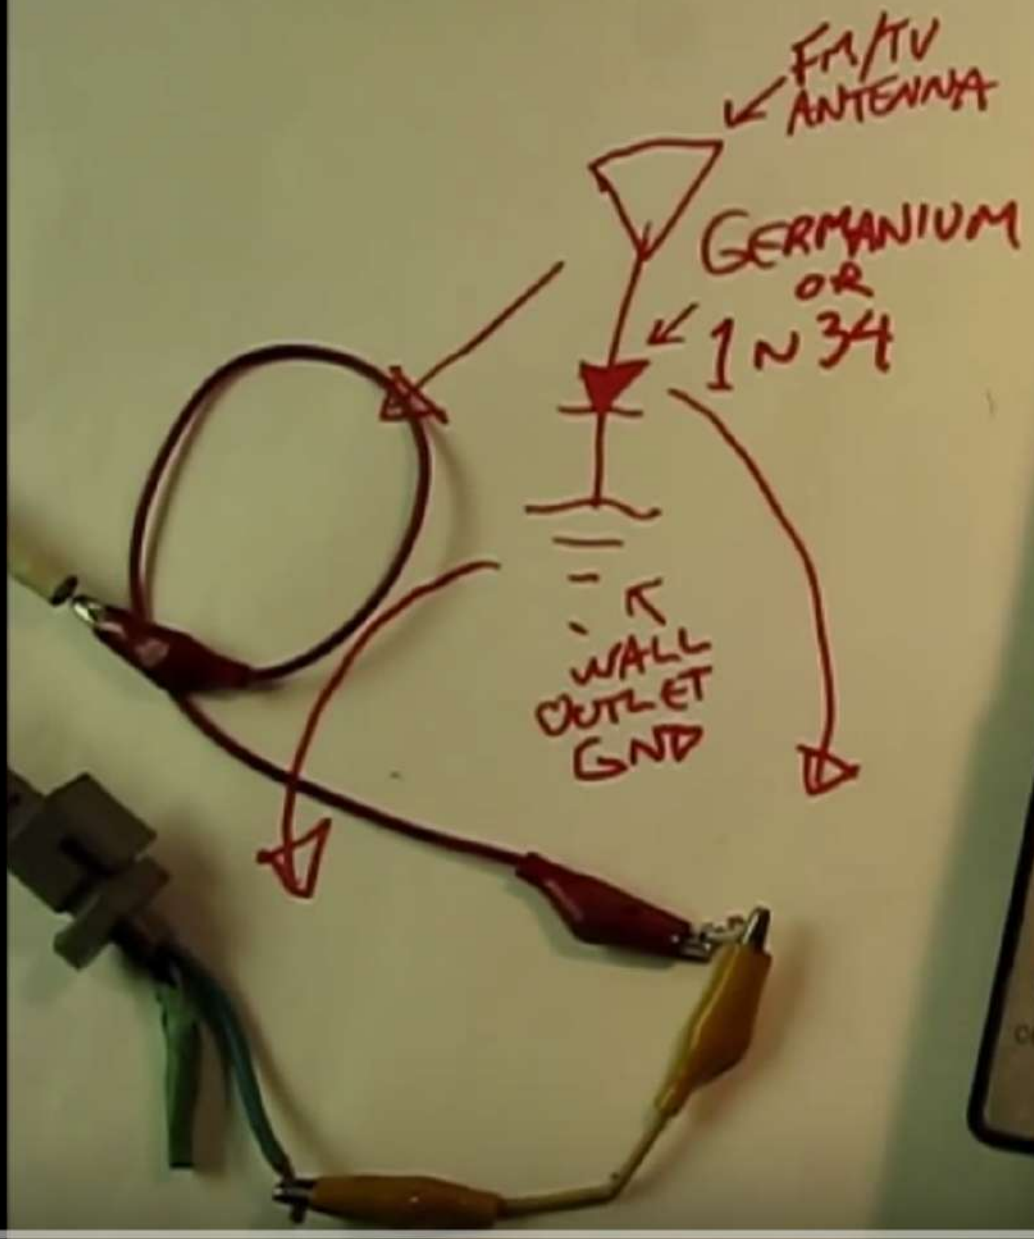 FM/TV
ANTENNA
GERMANIUM
OR
1N34
WALL
OUTLET
GND